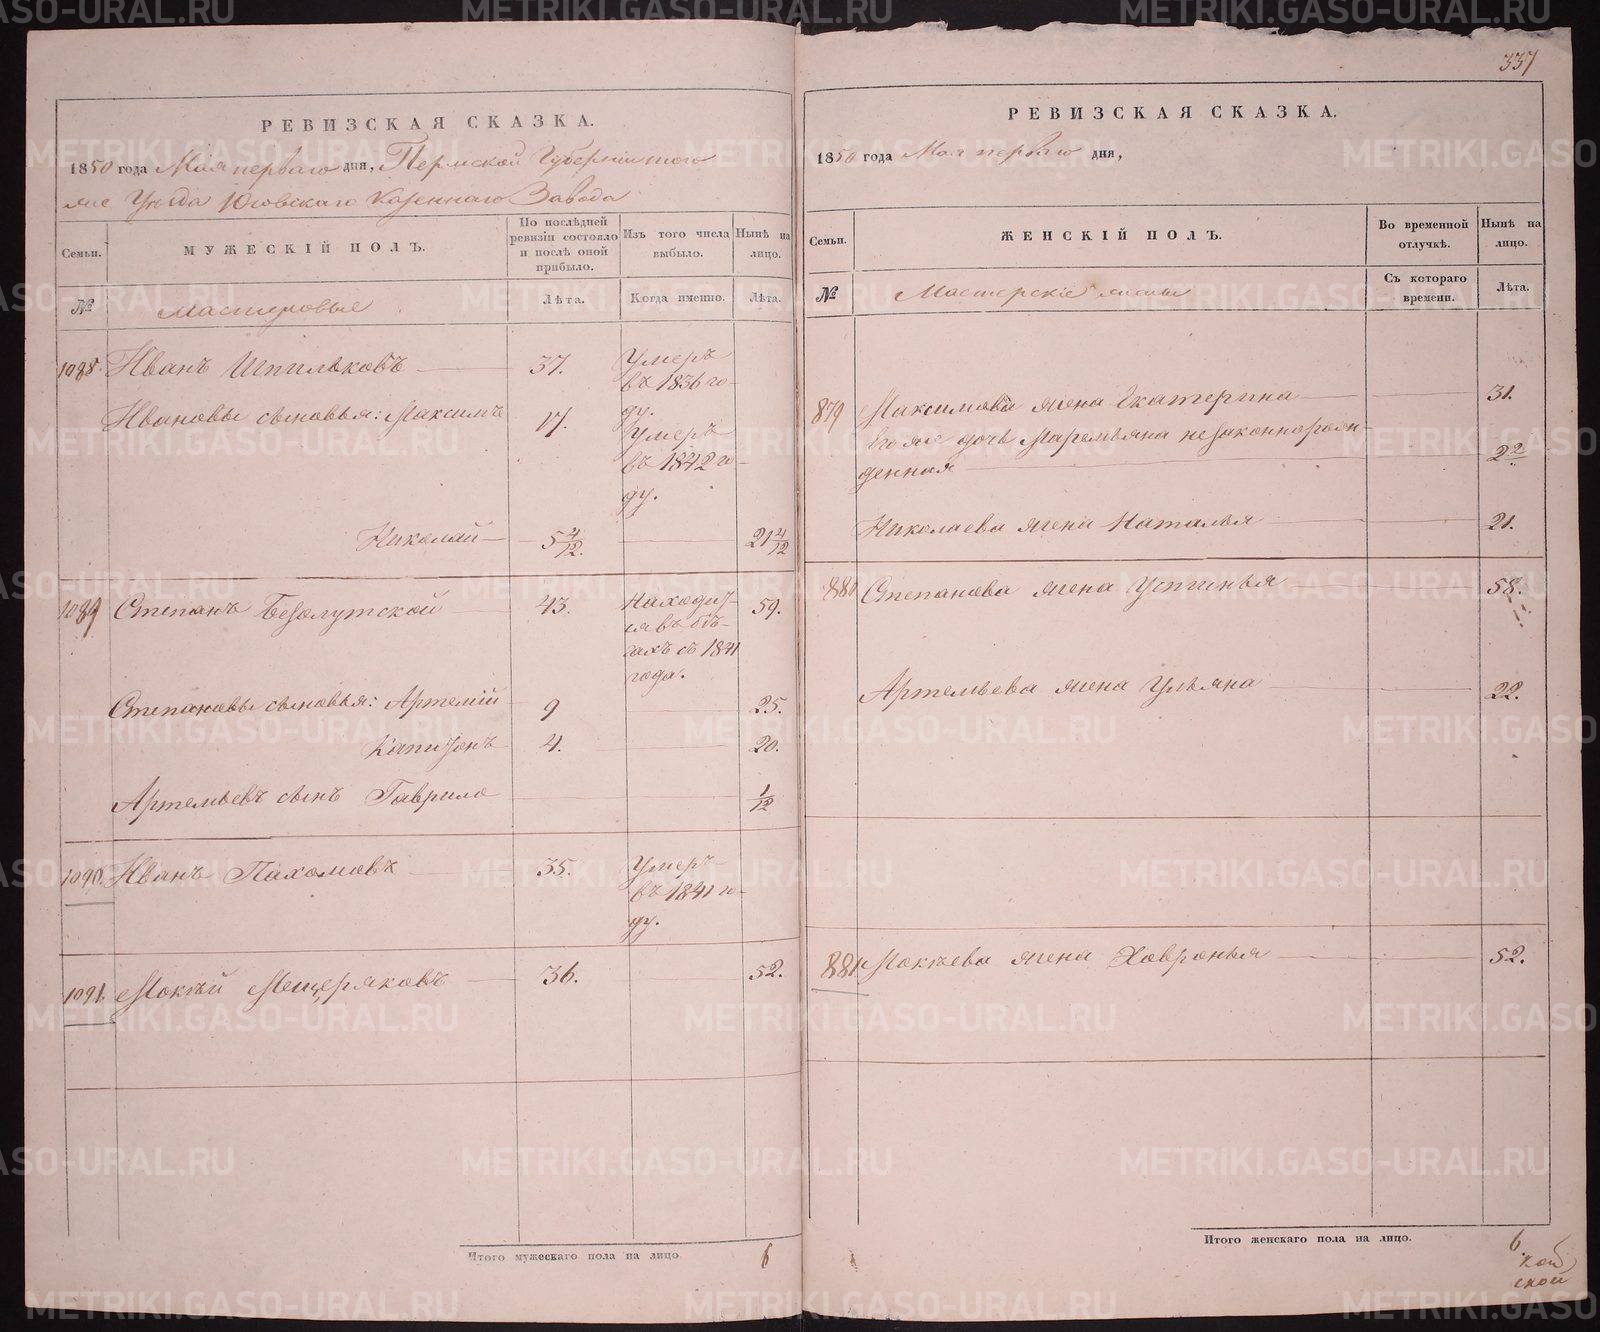 337
РЕВИЗСКАЯ СКАЗКА.
1850 года Мая перваго дня, Пермской Губерніи того
же Уѣзда Юговскаго Казеннаго Завода
Семьи.
МУЖЕСКІЙ ПОЛЪ.
По послѣдней ревизіи состояло и послѣ оной прибыло.
Изъ того числа выбыло.
Нынѣ на лицо.
№
Мастеровые
Лѣта.
Когда именно.
Лѣта.
1088. Иванъ Шпильковъ 37. Умеръ
въ 1836 го-
ду.
Ивановы сыновья: Максимъ 17. Умеръ
въ 1842 го-
ду.
Николай 5 4/12. 21 4/12
1089 Степанъ Безолутской 43. Находит-
ся въ бѣ-
гахъ съ 1841
года. 59.
Степановы сыновья: Артемій 9 25.
Капитонъ 4. 20.
Артемьевъ сынъ Гаврило 1/12
1090. Иванъ Пахомовъ 35. Умеръ
въ 1841 го-
ду.
1091. Мокѣй Мещеряковъ 36. 52.
Итого мужескаго пола на лицо. 6
РЕВИЗСКАЯ СКАЗКА.
1850 года Мая перваго дня,
Семьи.
ЖЕНСКІЙ ПОЛЪ.
Во временной отлучкѣ.
Нынѣ на лицо.
№
Мастерскіе жены
Съ котораго времени.
Лѣта.
879 Максимова жена Екатерина 31.
Ея же дочь Маремьяна незаконнорож-
денная
Николаева жена Наталья 21.
880 Степанова жена Устинья 58.
Артемьева жена Ульяна 22.
881 Мокѣева жена Хавронья 52.
Итого женскаго пола на лицо. 6.
METRIKI.GASO-URAL.RU